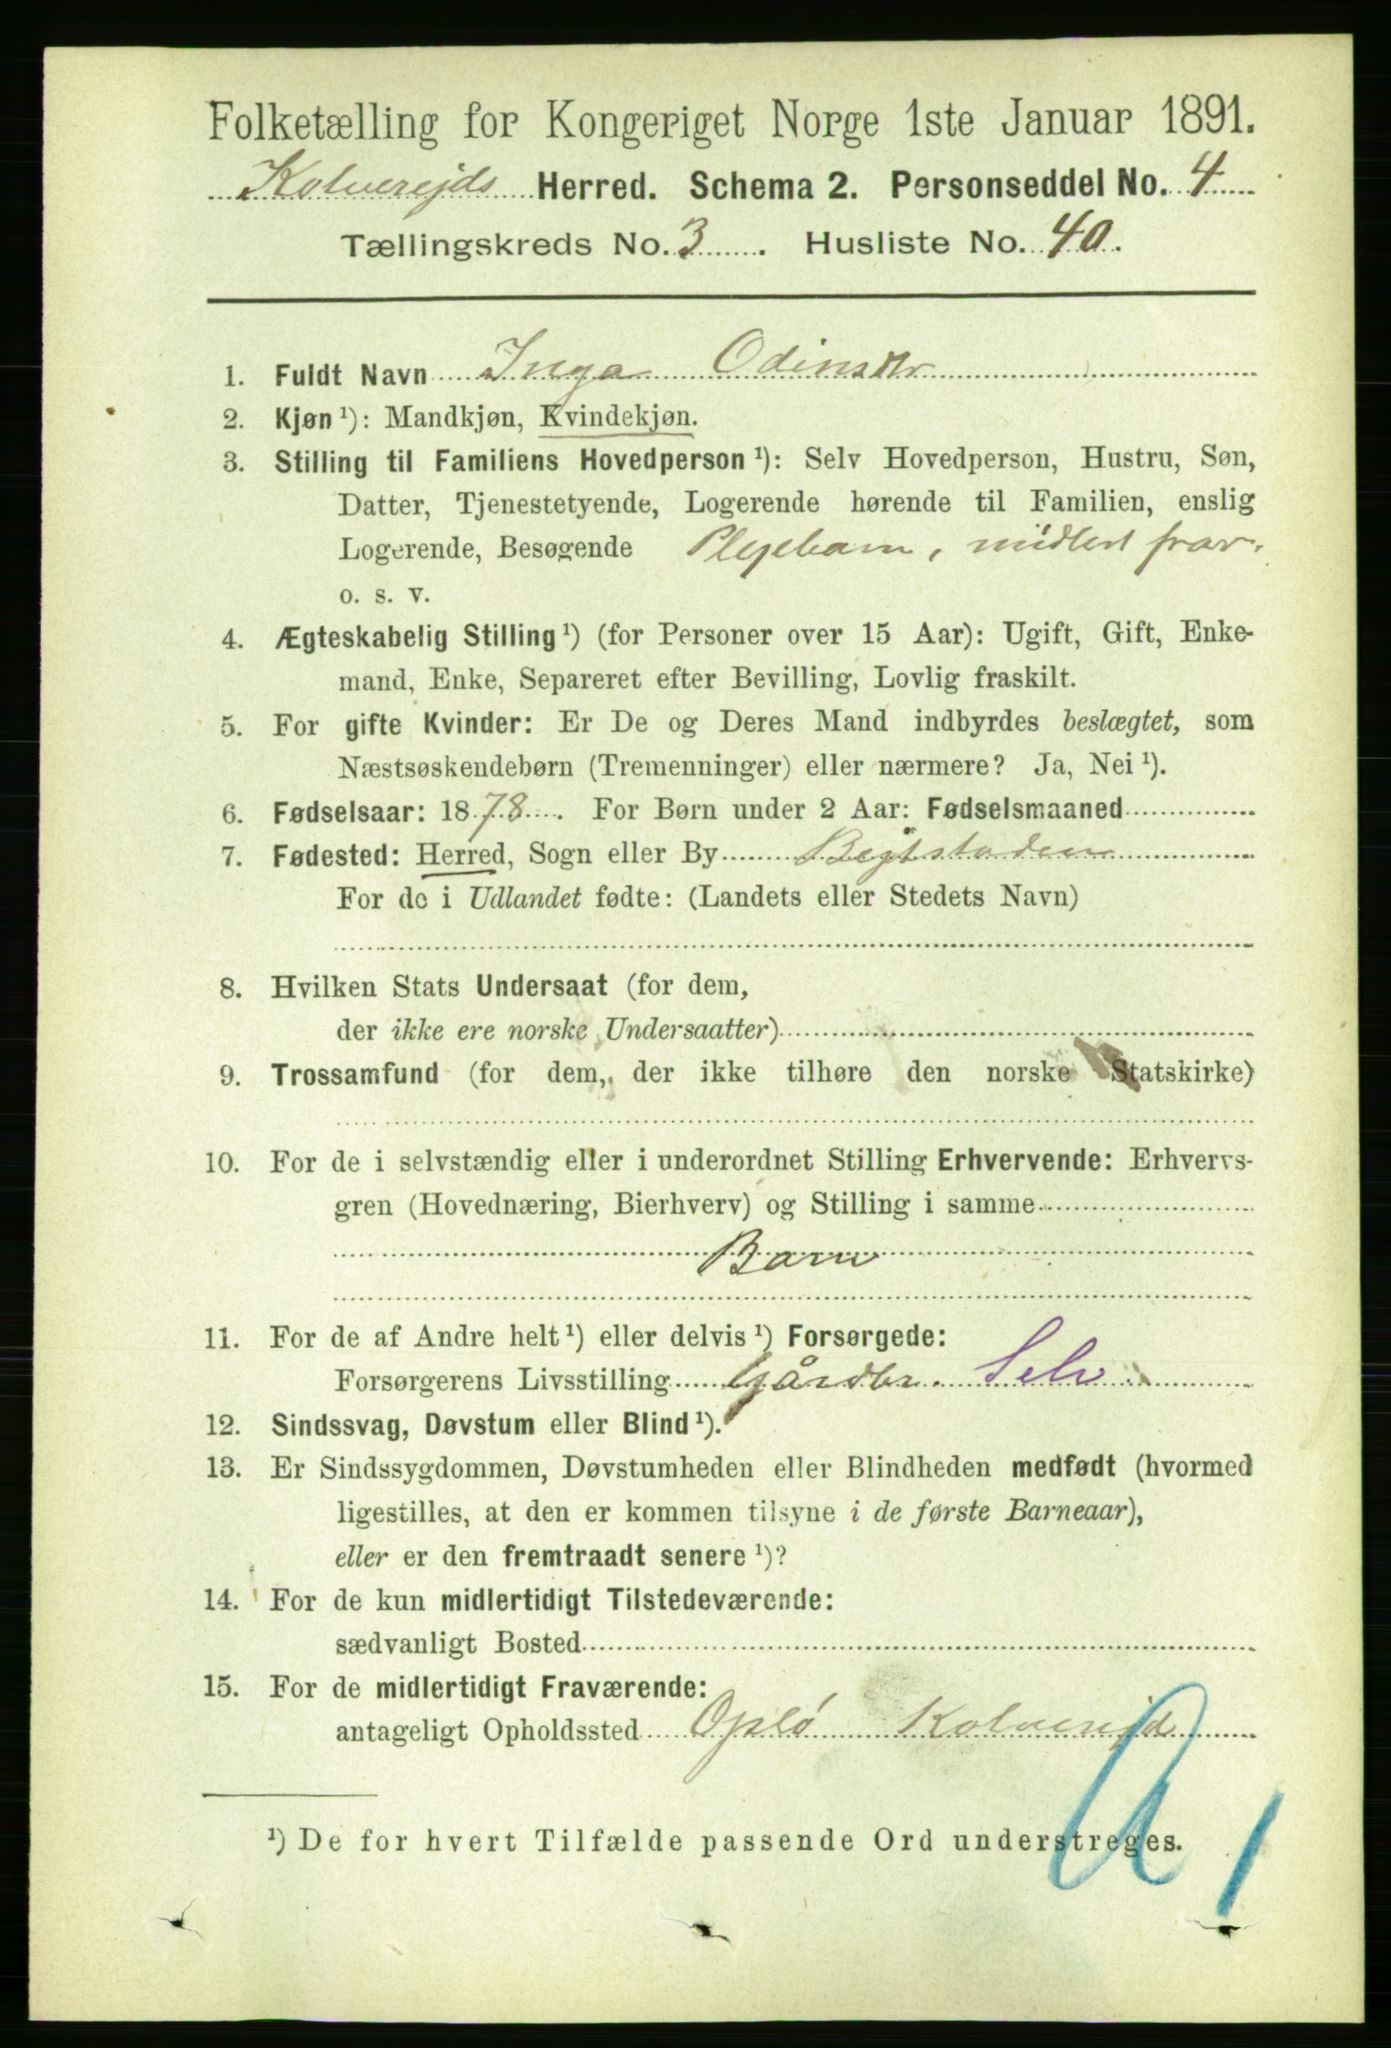 Folketælling for Kongeriget Norge 1ste Januar 1891.
Kolverejds Herred. Schema 2. Personseddel No. 4
Tællingskreds No. 3. Husliste No. 40.
1. Fuldt Navn Inga Odinsdtr
2. Kjøn ¹): Mandkjøn, Kvindekjøn.
3. Stilling til Familiens Hovedperson ¹): Selv Hovedperson, Hustru, Søn,
Datter, Tjenestetyende, Logerende hørende til Familien, enslig
Logerende, Besøgende Plejebarn, midlert frav.
o. s. v.
4. Ægteskabelig Stilling ¹) (for Personer over 15 Aar): Ugift, Gift, Enke-
mand, Enke, Separeret efter Bevilling, Lovlig fraskilt.
5. For gifte Kvinder: Er De og Deres Mand indbyrdes beslægtet, som
Næstsøskendebørn (Tremenninger) eller nærmere? Ja, Nei ¹).
6. Fødselsaar: 1878. For Børn under 2 Aar: Fødselsmaaned
7. Fødested: Herred, Sogn eller By Bejtstaden
For de i Udlandet fødte: (Landets eller Stedets Navn)
8. Hvilken Stats Undersaat (for dem,
der ikke ere norske Undersaatter)
9. Trossamfund (for dem, der ikke tilhøre den norske Statskirke)
10. For de i selvstændig eller i underordnet Stilling Erhvervende: Erhvervs-
gren (Hovednæring, Bierhverv) og Stilling i samme
Barn
11. For de af Andre helt ¹) eller delvis ¹) Forsørgede:
Forsørgerens Livsstilling Gårdbr. Selv
12. Sindssvag, Døvstum eller Blind ¹).
13. Er Sindssygdommen, Døvstumheden eller Blindheden medfødt (hvormed
ligestilles, at den er kommen tilsyne i de første Barneaar),
eller er den fremtraadt senere ¹)?
14. For de kun midlertidigt Tilstedeværende:
sædvanligt Bosted
15. For de midlertidigt Fraværende:
antageligt Opholdssted Oplö Kolverejd
¹) De for hvert Tilfælde passende Ord understreges.